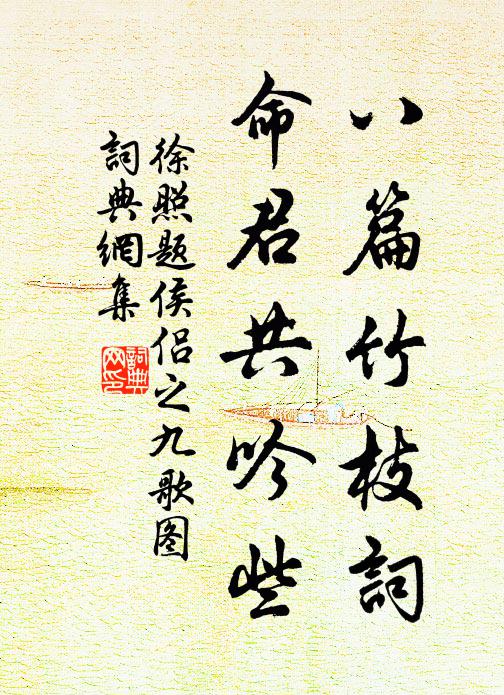 八篇竹枝詞
命君共吟些
徐照题侯侣之九歌图
詞典網集
詞典网印